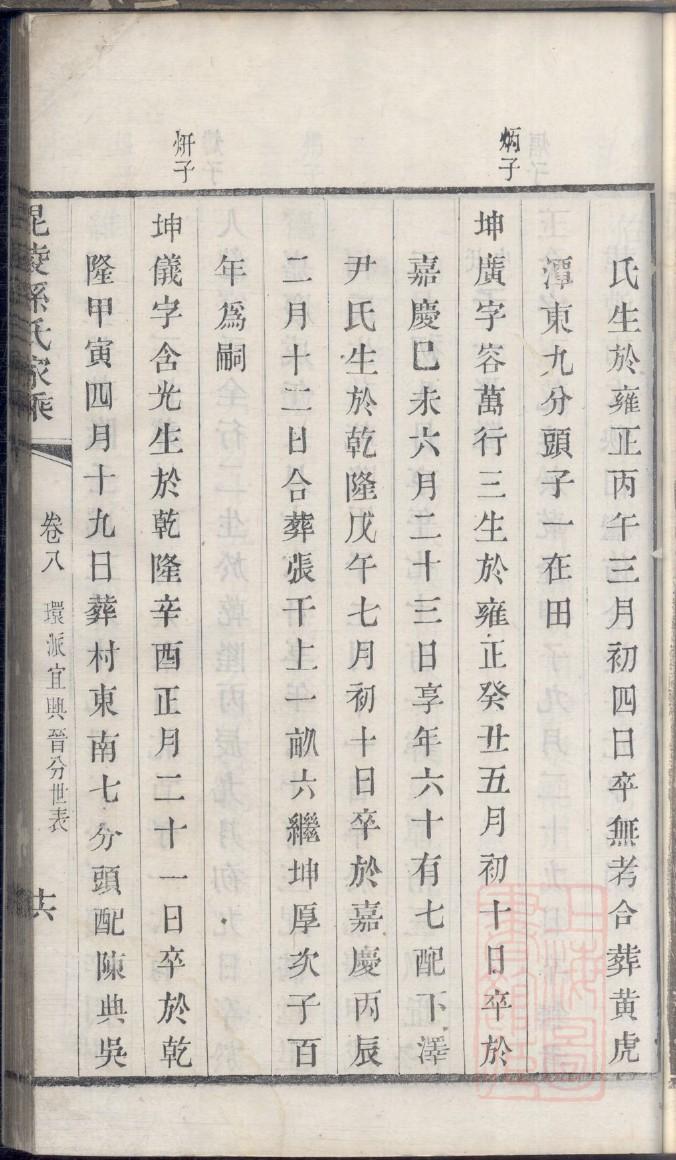 氏生於雍正丙午三月初四日卒無考合葬黃虎
潭東九分頭子一在田
炳子
坤廣字容萬行三生於雍正癸丑五月初十日卒於
嘉慶巳未六月二十三日享年六十有七配下澤
尹氏生於乾隆戊午七月初十日卒於嘉慶丙辰
二月十二日合葬張干上一畝六繼坤厚次子百
年爲嗣
姸子
坤儀字含光生於乾隆辛酉正月二十一日卒於乾
隆甲寅四月十九日葬村東南七分頭配陳典吳
毘陵孫氏家乘
卷八 環派宜興晉分世表